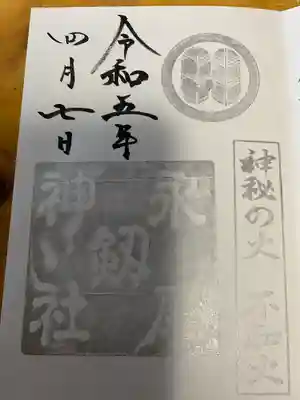 令和五年
四月七日
神秘の火 不知火
永尾
釼
神社